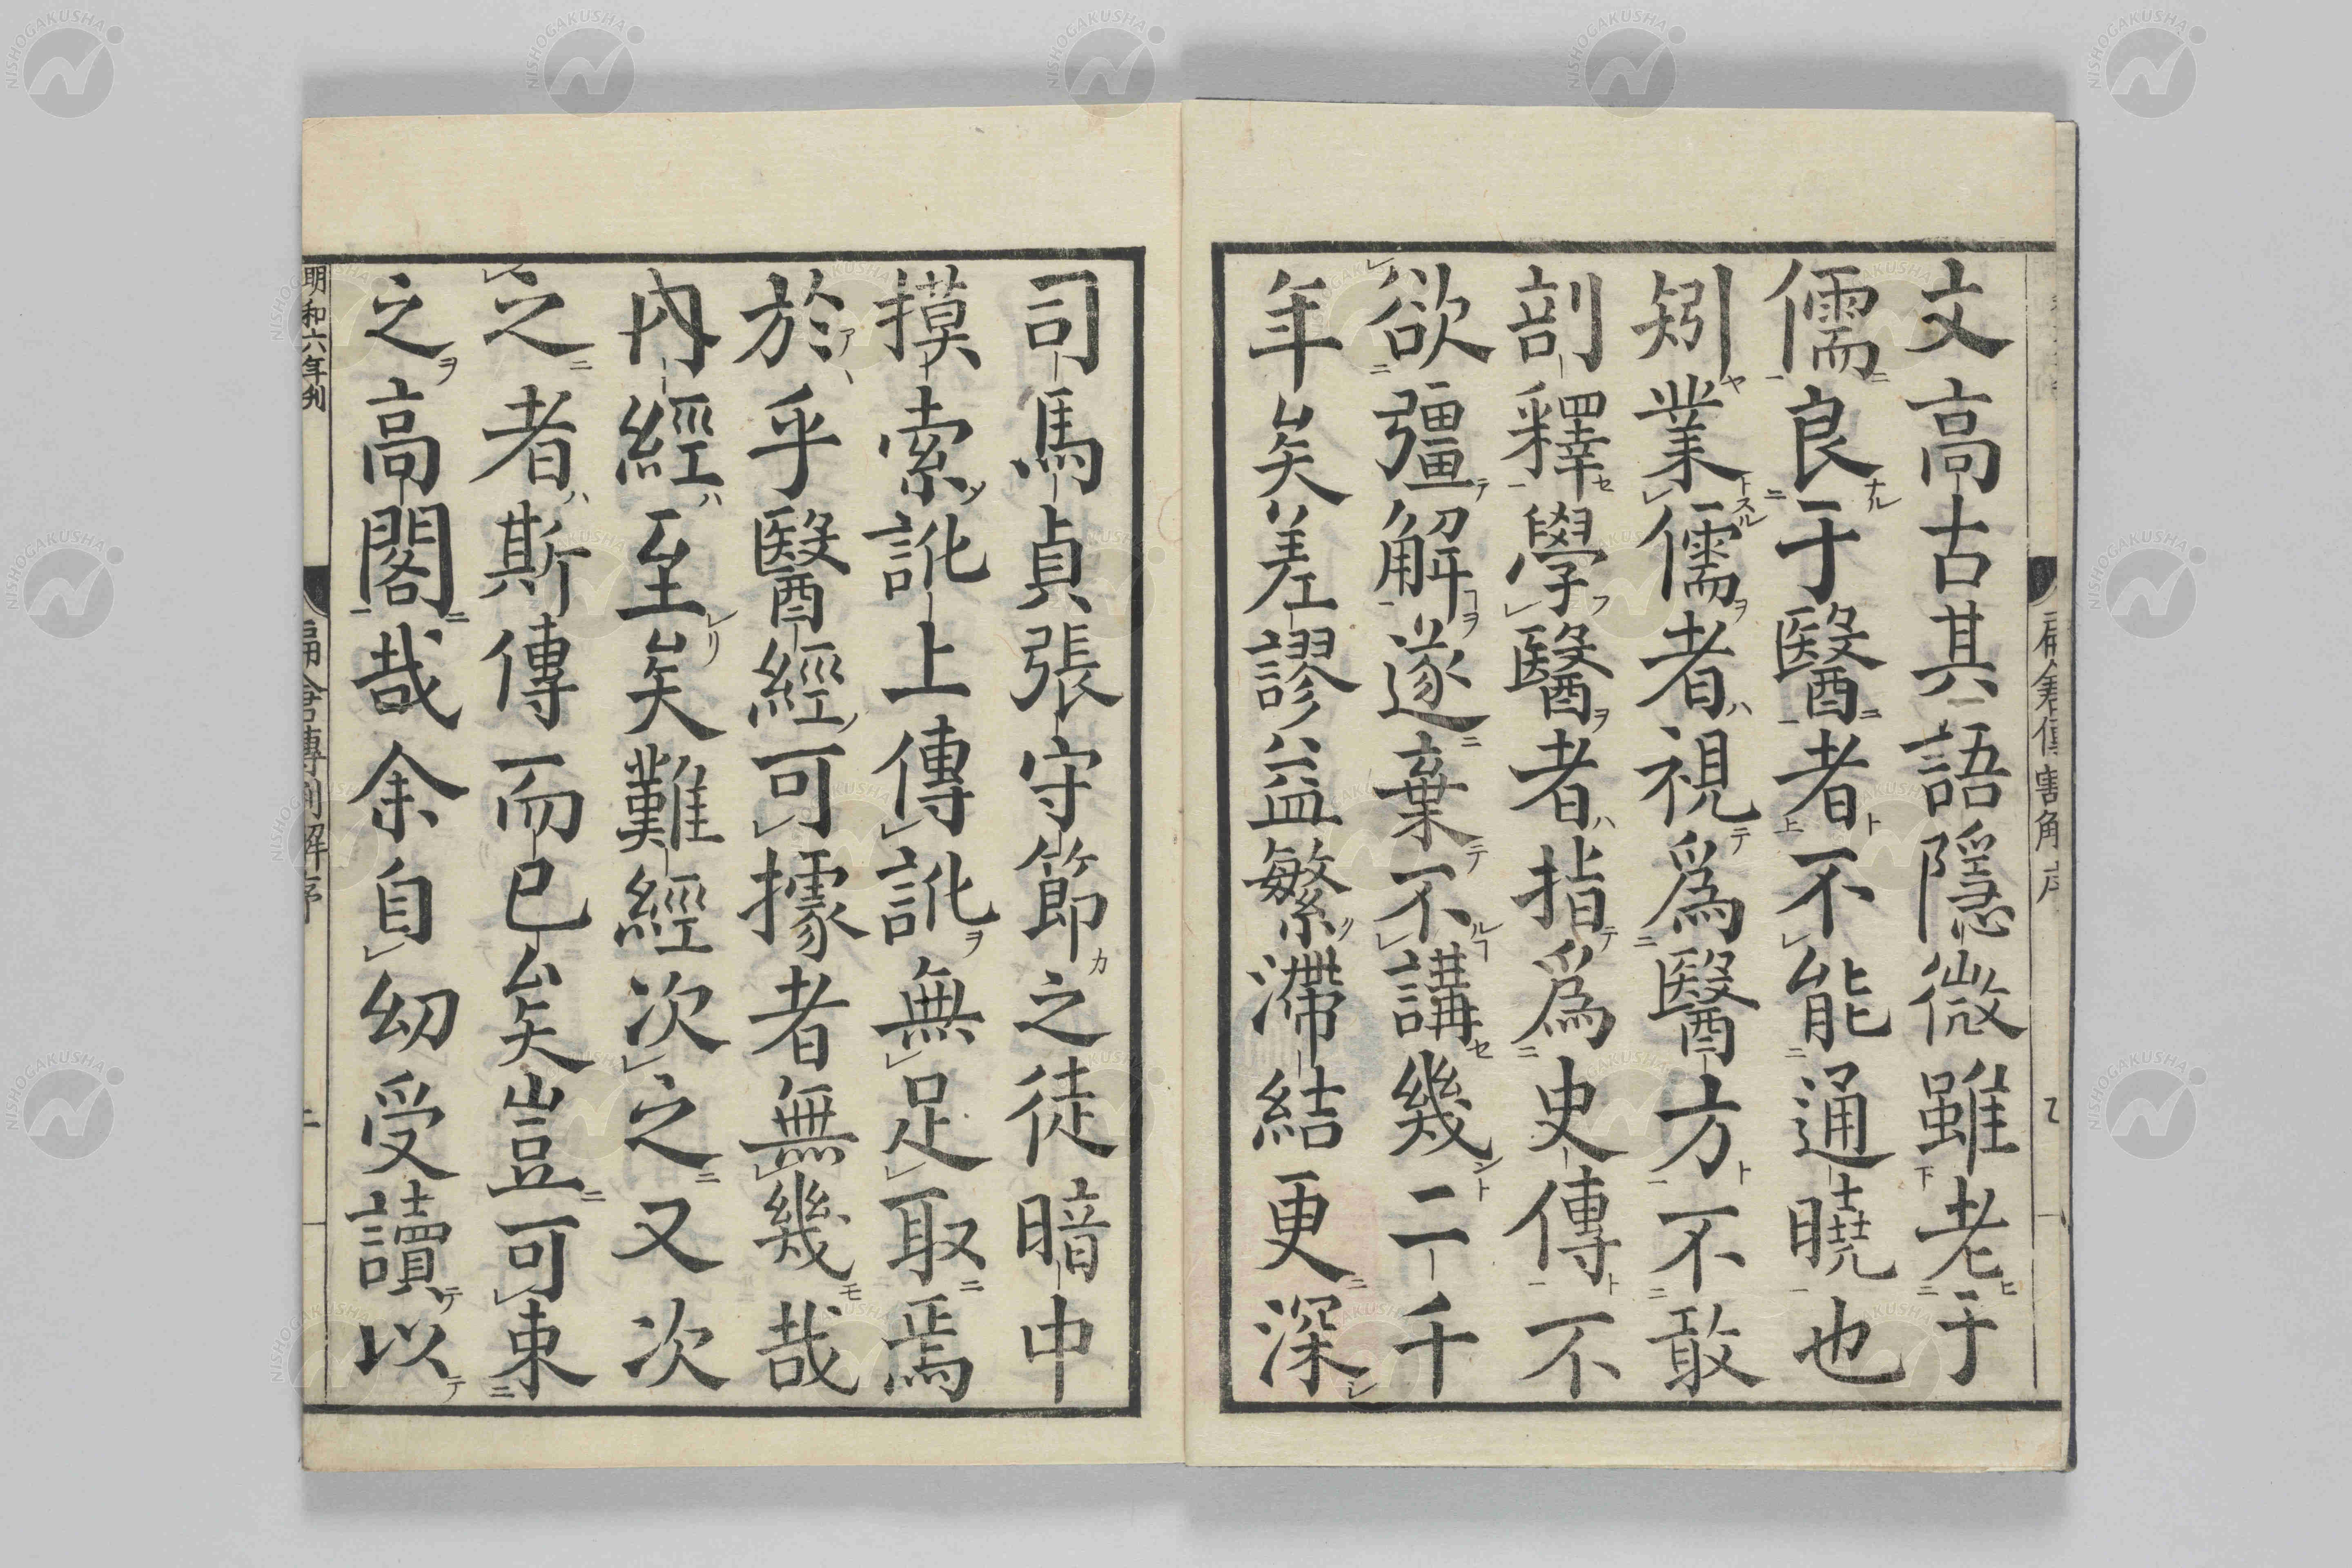 文高古其語隱微雖老于
儒良于醫者不能通曉也
矧業儒者視爲醫方不敢
剖釋學醫者指爲史傳不
欲彊解遂棄不講幾二千
年矣差謬益繁滯結更深
司馬貞張守節之徒暗中
摸索訛上傳訛無足取焉
於乎醫經可據者無幾哉
內經至矣難經次之又次
之者斯傳而已矣豈可束
之高閣哉余自幼受讀以
明和六年刋
扁倉傳割解序
二
NISHOGAKUSHA